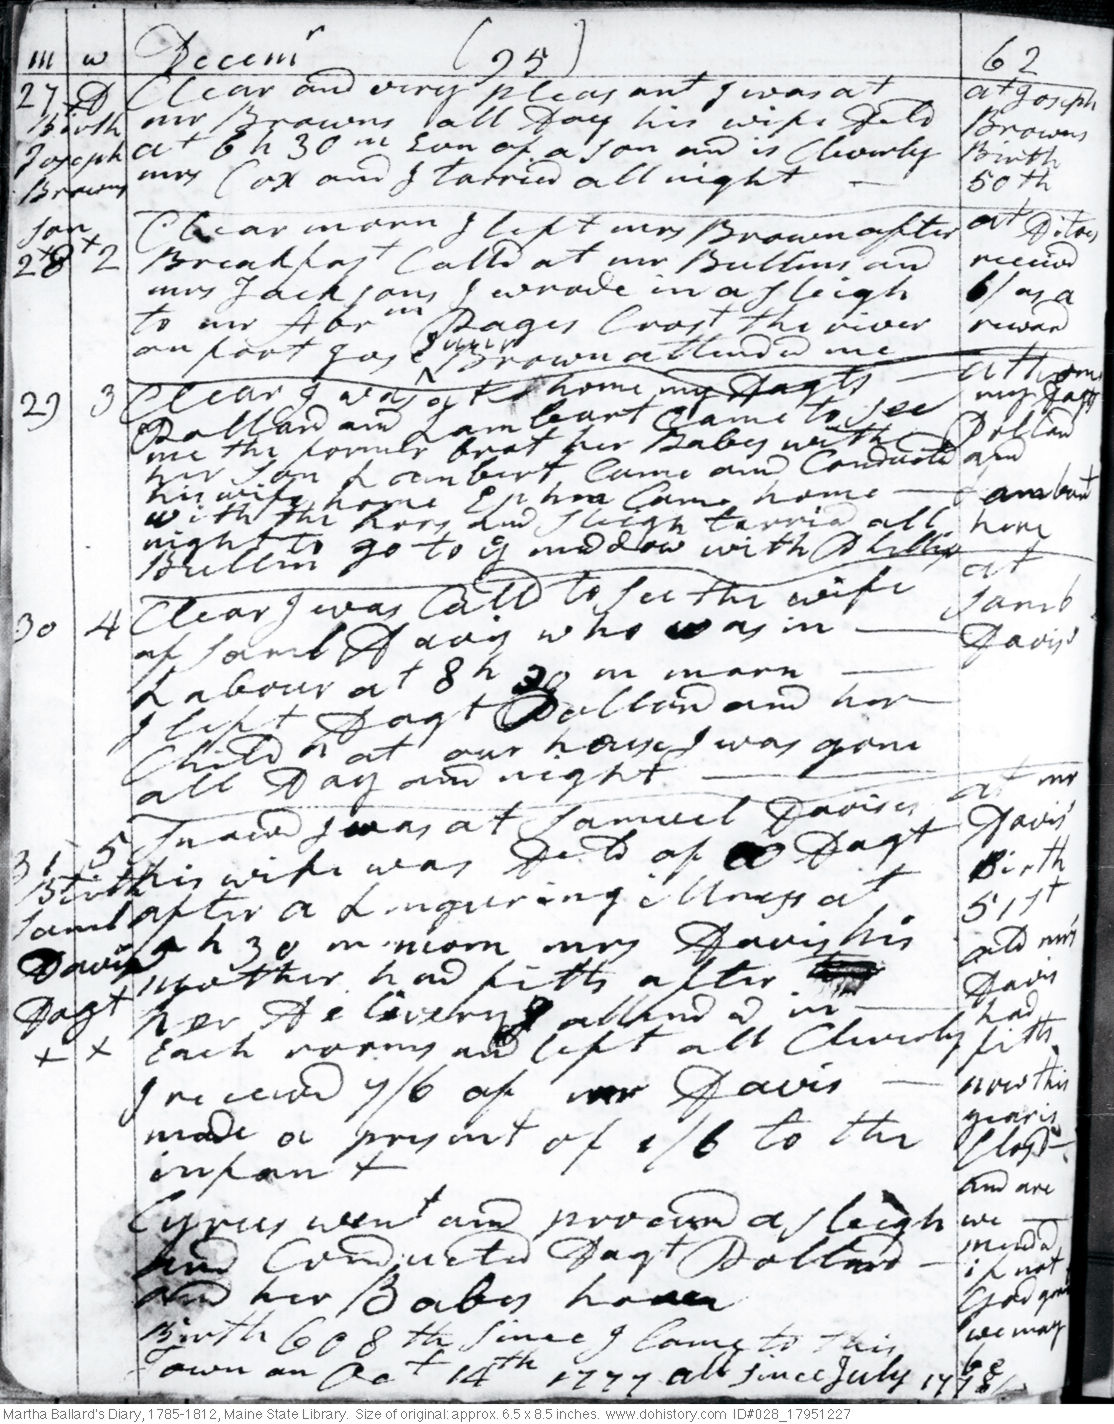 m w Decemr (95) 62
27 D Clear and very pleasant I was at
mr Browns all Day his wife Deld
at 6 h 30 m Evn of a son and is Cleverly
mrs Cox and I tarried all night —
Birth
Joseph
Browns
son
× ×
at Joseph
Browns
Birth
50th
28 2 Clear morn I left mrs Brown after
Breakfast Calld at mr Bullins and
mrs Jacksons I wrode in a sleigh
to mr Abrm Pages Crost the river
on foot Jos Brown Junr attended me
at Ditoes
receivd
6/ as a
reward
29 3 Clear I was at home my Dagts —
Pollard and Lambart Came to see
me the former brot her Babes with
her son Lambert Came and Conducted
his wife home Ephm Came home —
with the hors and sleigh tarried all
night to go to ye meddow with Phillip
Bullin
at home
my Dagts
Pollard
and
Lambart
here
30 4 Clear I was Calld to see the wife
of Saml Davis who was in —
Labour at 8 h 30 m morn —
I left Dagt Pollard and her
Childn at our house I was gone
all Day and night —
at
Saml
Davis'
31 5 Snowd I was at Samuel Davises
his wife was Deld of a Dagt
after a Linguering illness at
h 30 m morn mrs Davis his
mother had fitts after
her Delivery I attended in —
Each rooms and left all Cleverly
I received 7/6 of mr Davis —
made a present of 1/6 to the
infant
Birth
Saml
Davis
Dagt
× ×
at mr
Davis'
Birth
51st
old mrs
Davis
had
fitts.
now this
year is
Closd —
and are
we —
mendd
if not
God grant
we may
be
Cyrus went and procured a sleigh
and Conducted Dagt Pollard —
and her Babes home
Birth 608th Since I Came to This
Town on Oct 14th 1777 all since July 1778/
Martha Ballard's Diary, 1785-1812, Maine State Library. Size of original: approx. 6.5 x 8.5 inches. www.dohistory.org ID#028_17951227